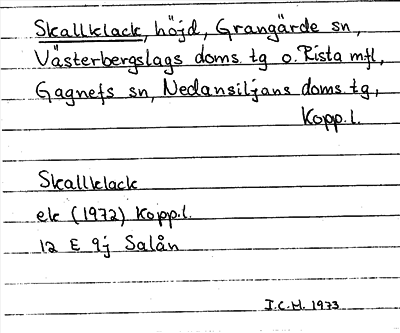 Skallklack, höjd, Grangärde sn,
Västerbergslags doms. tg o. Rista mfl,
Gagnefs sn, Nedansiljans doms. tg,
Kopp. l.
Skallklack
ek (1972) Kopp. l.
12 E 9j Salån
I.C.M. 1973